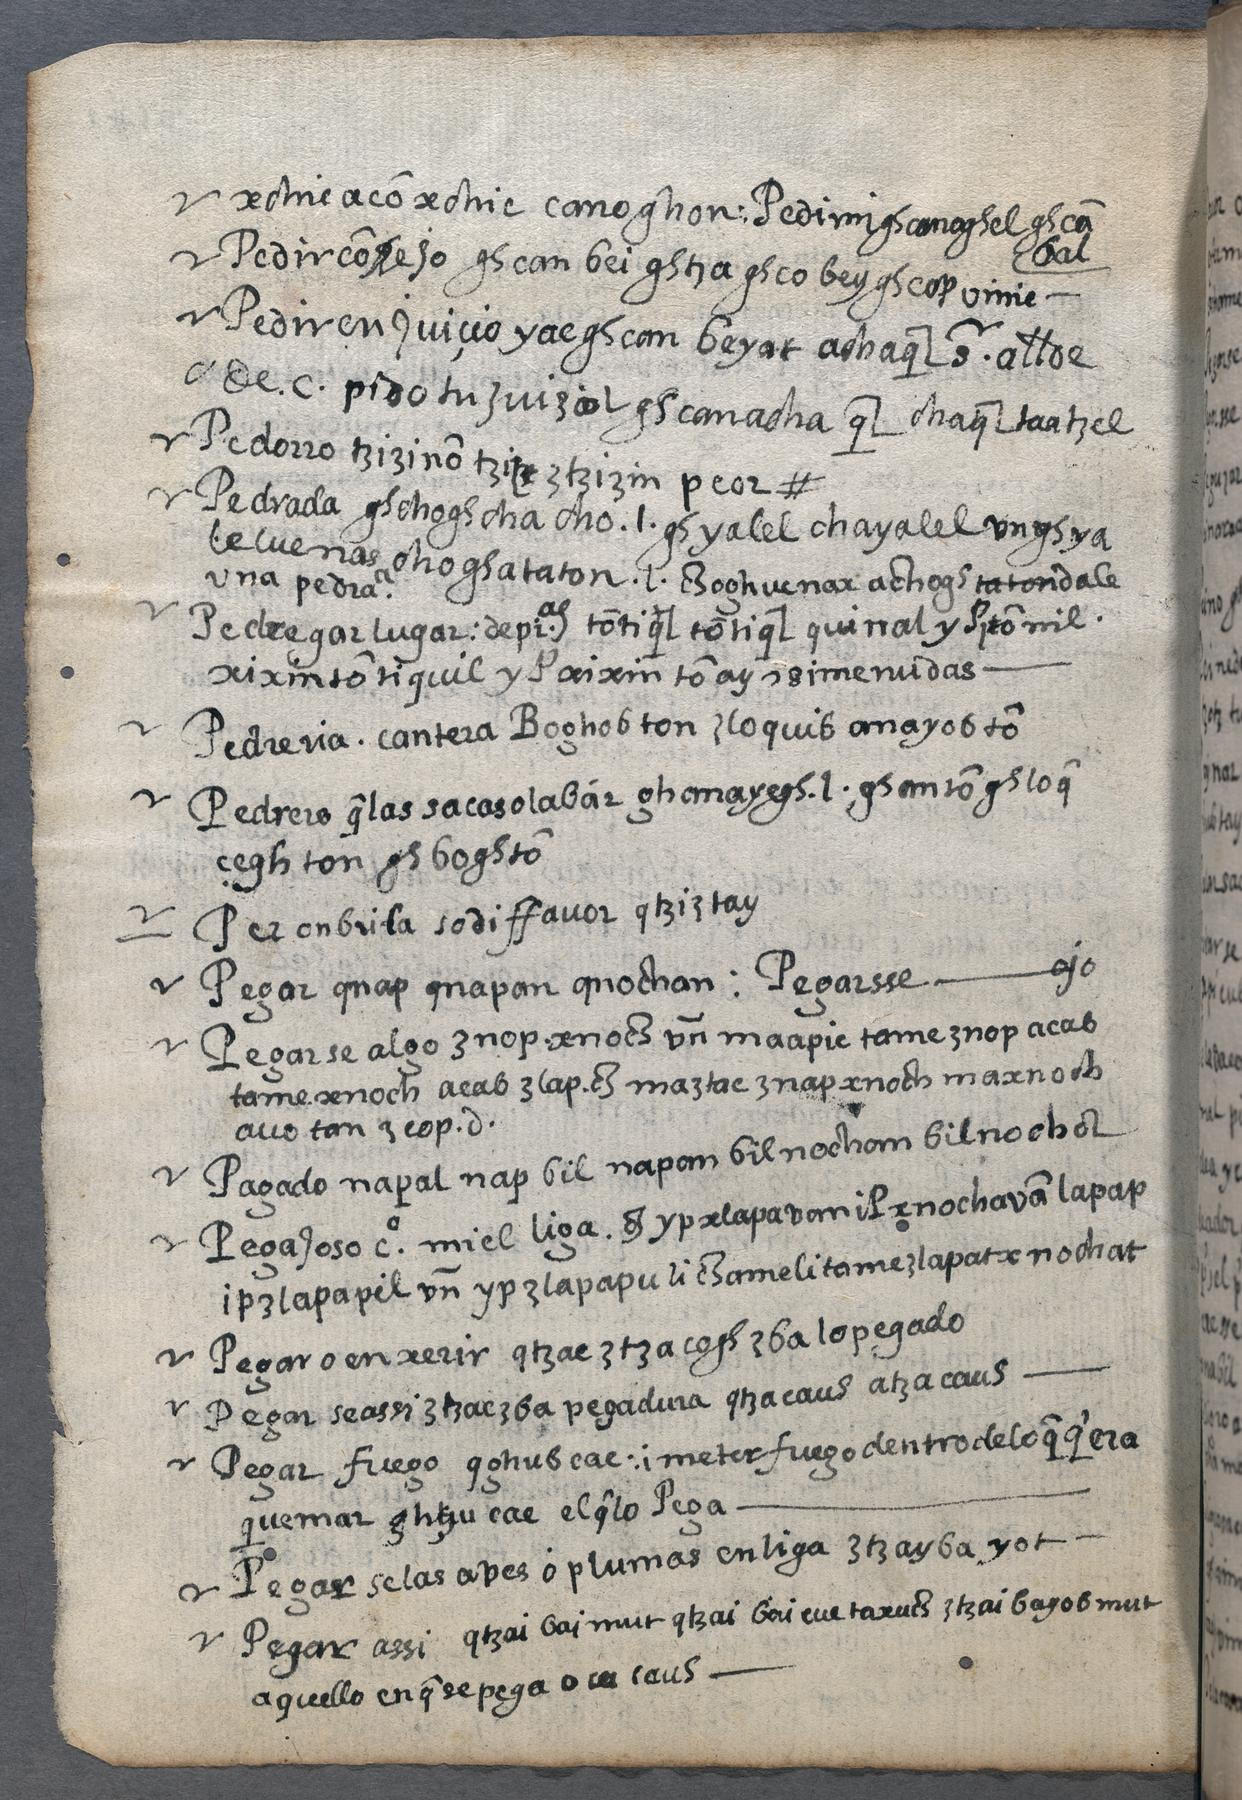 xchie acô xchie canoghon: Pedimi ghcanoghel ghcâ
bal
Pedir côsejo gh can bei ghtza ghco bey ghcop vinie —
Pedir en Juiçio yae ghcan beyat achaq̄l sr. allde
de. c. pido tu ʒuiʒiol gh canacha q̄l chaq̄l taatzel
Pedorro tziʒinô ʒtziʒin peor #
Pedrada ghchogh cha cho .l. gh yalel chayalel vn gh ya
lel uenas choghataton .l. choghuenax achogh tatondale
vna pedraa.
Pedregar lugar: de pi.as tôtiq̄l tôtiq̄l quinal y P tô nil.
xixintôtiquil y P xixin tô ay si menudas —
Pedreria . cantera Boghob ton ʒloquib anayob tô
Pedrero q̄ las saca o labár ghanayegh .l. ghantô ghloq̄
çegh ton gh boghtô
Per onbrila sodi ffauor qtziʒtay
Pegar qnap qnapan qnochan : Pegarsse — ojo
Pegarse algo ʒnop. xnoch vn̄ maapie tame ʒnop acab
tame xnoch acab ʒlap. ch maʒtac ʒnap xnoch maxnoch
auo tan ʒcop. d.
Pagado napal nap bil napan bil nochan bil nochol
PegaJoso co. miel liga. yp xlapavan iP xnochavâ lapap
ipʒlapapil vn̄ yp ʒlapapu li chameli tame ʒlapat xnochat
Pegar o enxerir qtzae ʒtza cogh ʒba lo pegado
Pegar se assi ʒtzac ʒba pegadura qtzacaus atzacaus —
Pegar fuego qghub cae : i meter fuego dentro de lo q̄ q'era
quemar ghtzu cae el q̄ lo Pega —
Pegar se las aves ó plumas en liga ʒtzayba yot —
Pegar assi qtzai bai mut qtzai bai cue taxuch ʒtzai bayob mut
aquello en q̄ se pega o caus —